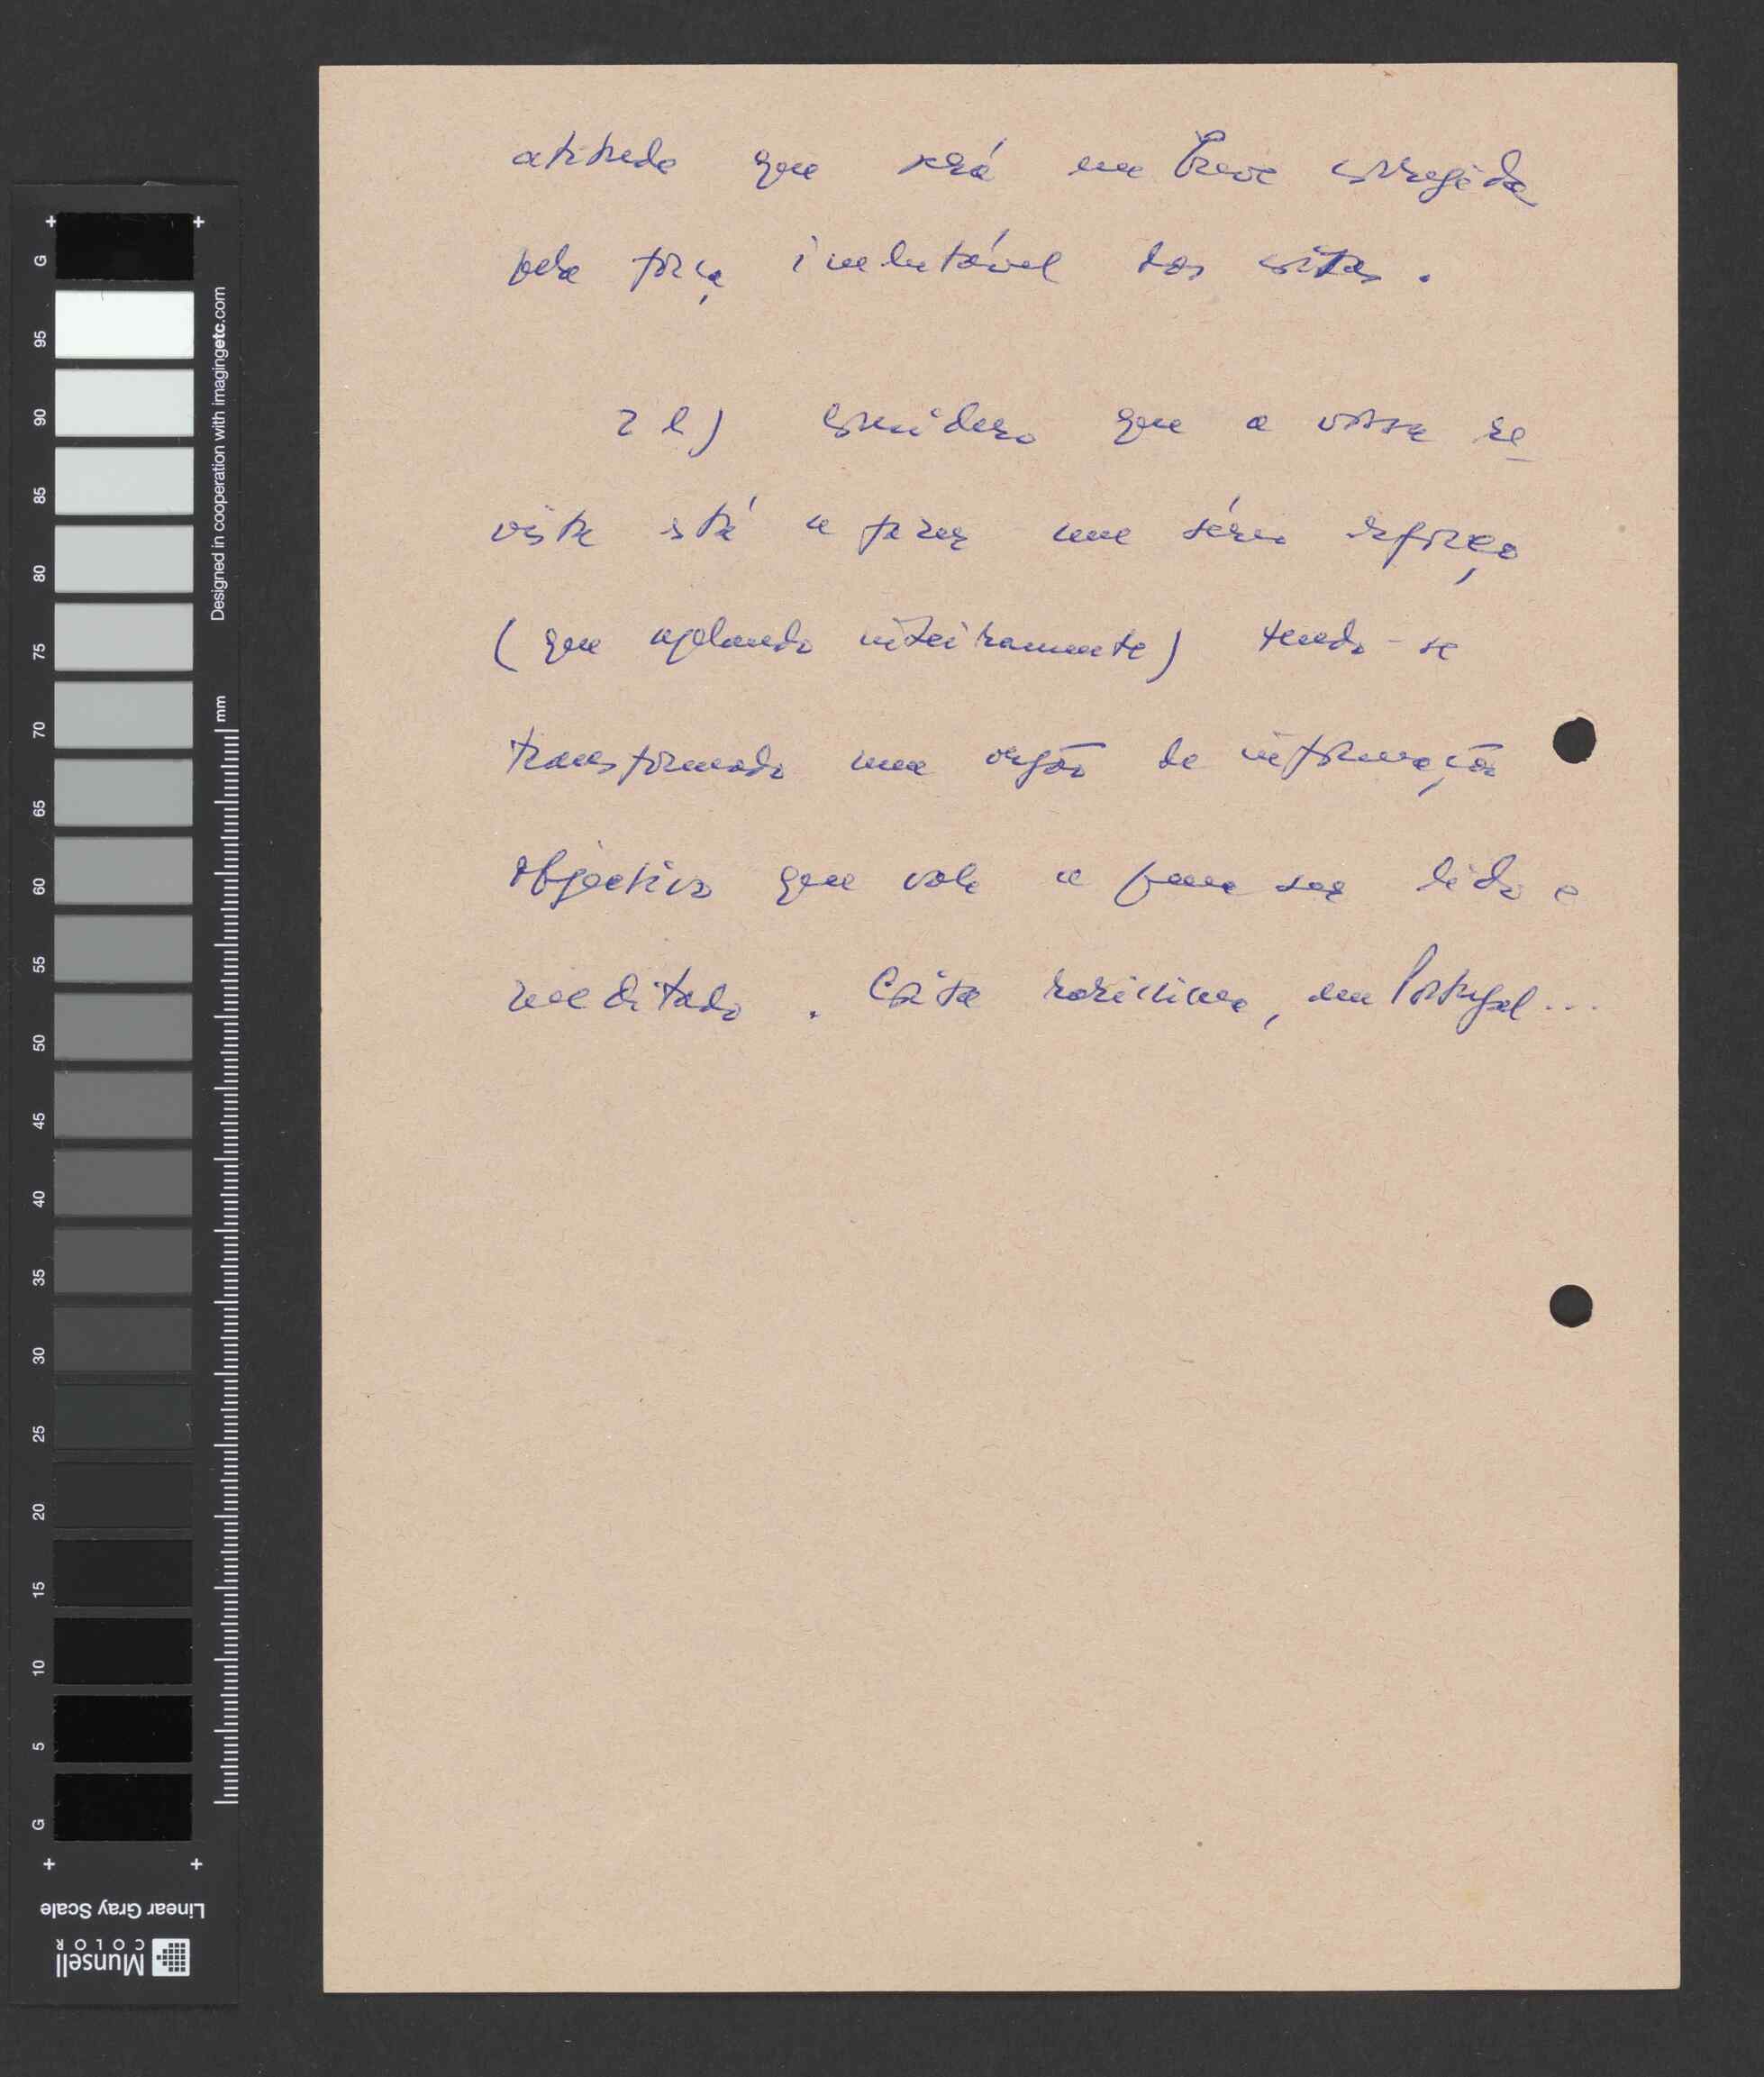 atitude que será em breve corrigida
pela força inelutável das coisas.
2ª) Considero que a vossa re
vista está a fazer um sério esforço
(que aplaudo inteiramente) tendo-se
transformado num orgão de informação
objectiva que vale a pena ser lido e
meditado. Coisa raríssima, em Portugal...
G
95
90
85
80
75
70
65
60
55
50
45
40
35
30
25
20
15
10
5
G
Designed in cooperation with imagingetc.com
mm
Linear Gray Scale
Munsell
COLOR